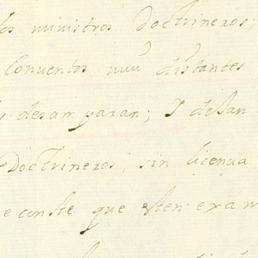 los ministros Doctrineros;
Conventos muy distantes
desamparan; I desan
Doctrineros, sin licencia
e conste que